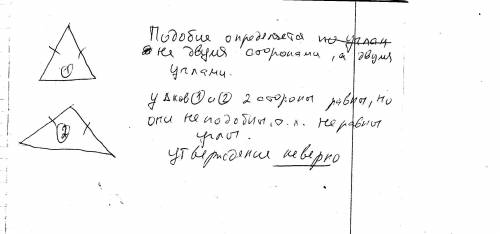 Подобие определяется по углам
не двумя сторонами, а двумя
углами.
У Δков ① и ② 2 стороны равны, но
они не подобны, т.к. не равны
углы.
Утверждение неверно
①
②